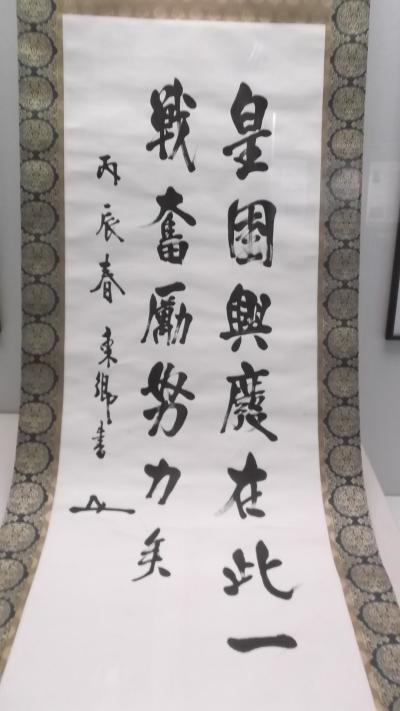 皇國興廢在此一
戰奮勵努力矣
丙辰春 東郷書